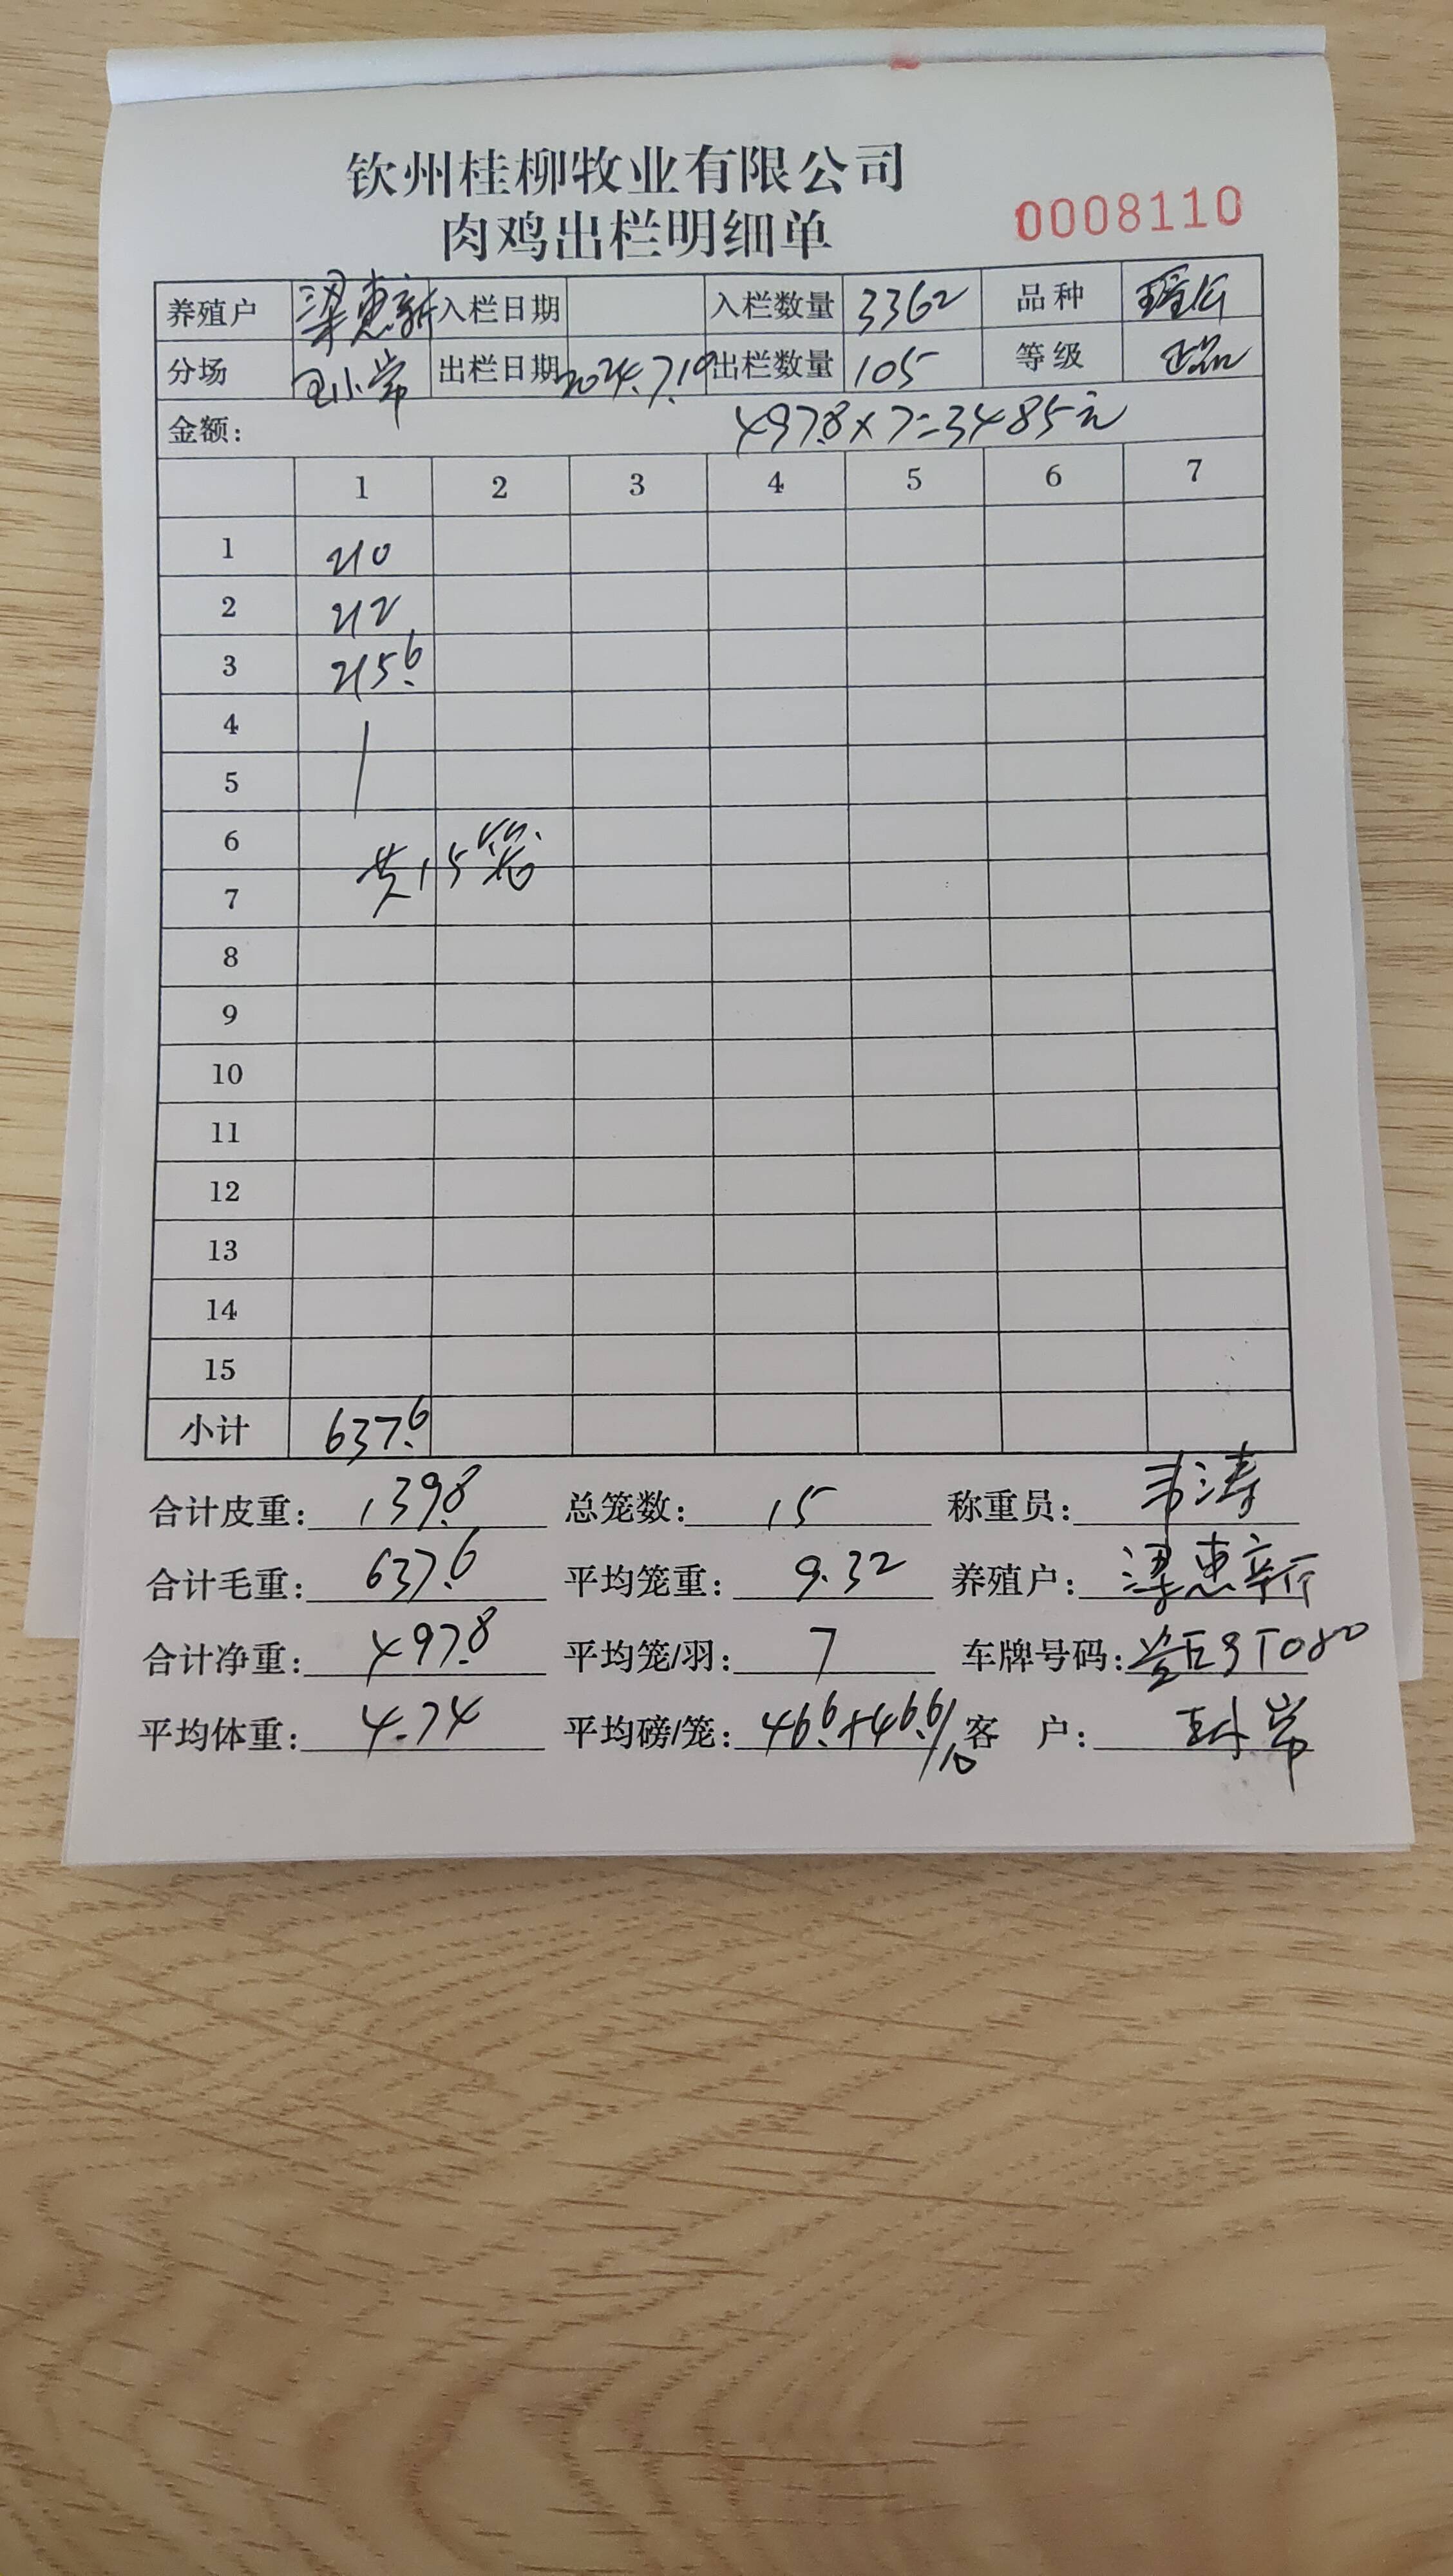 钦州桂柳牧业有限公司
肉鸡出栏明细单
0008110
养殖户 梁惠新 入栏日期 入栏数量 3362 品种
分场 王小常 出栏日期 2024.7.19 出栏数量 105 等级 正品
金额: 497.8×7=3485元
1 2 3 4 5 6 7
1 210
2 212
3 215.6
4
5
6
共15笼
7
8
9
10
11
12
13
14
15
小计 637.6
合计皮重: 139.8 总笼数: 15 称重员: 韦涛
合计毛重: 637.6 平均笼重: 9.32 养殖户: 梁惠新
合计净重: 497.8 平均笼/羽: 7 车牌号码:
平均体重: 4.74 平均磅/笼: 46.6+46.6/10 客 户: 王小常